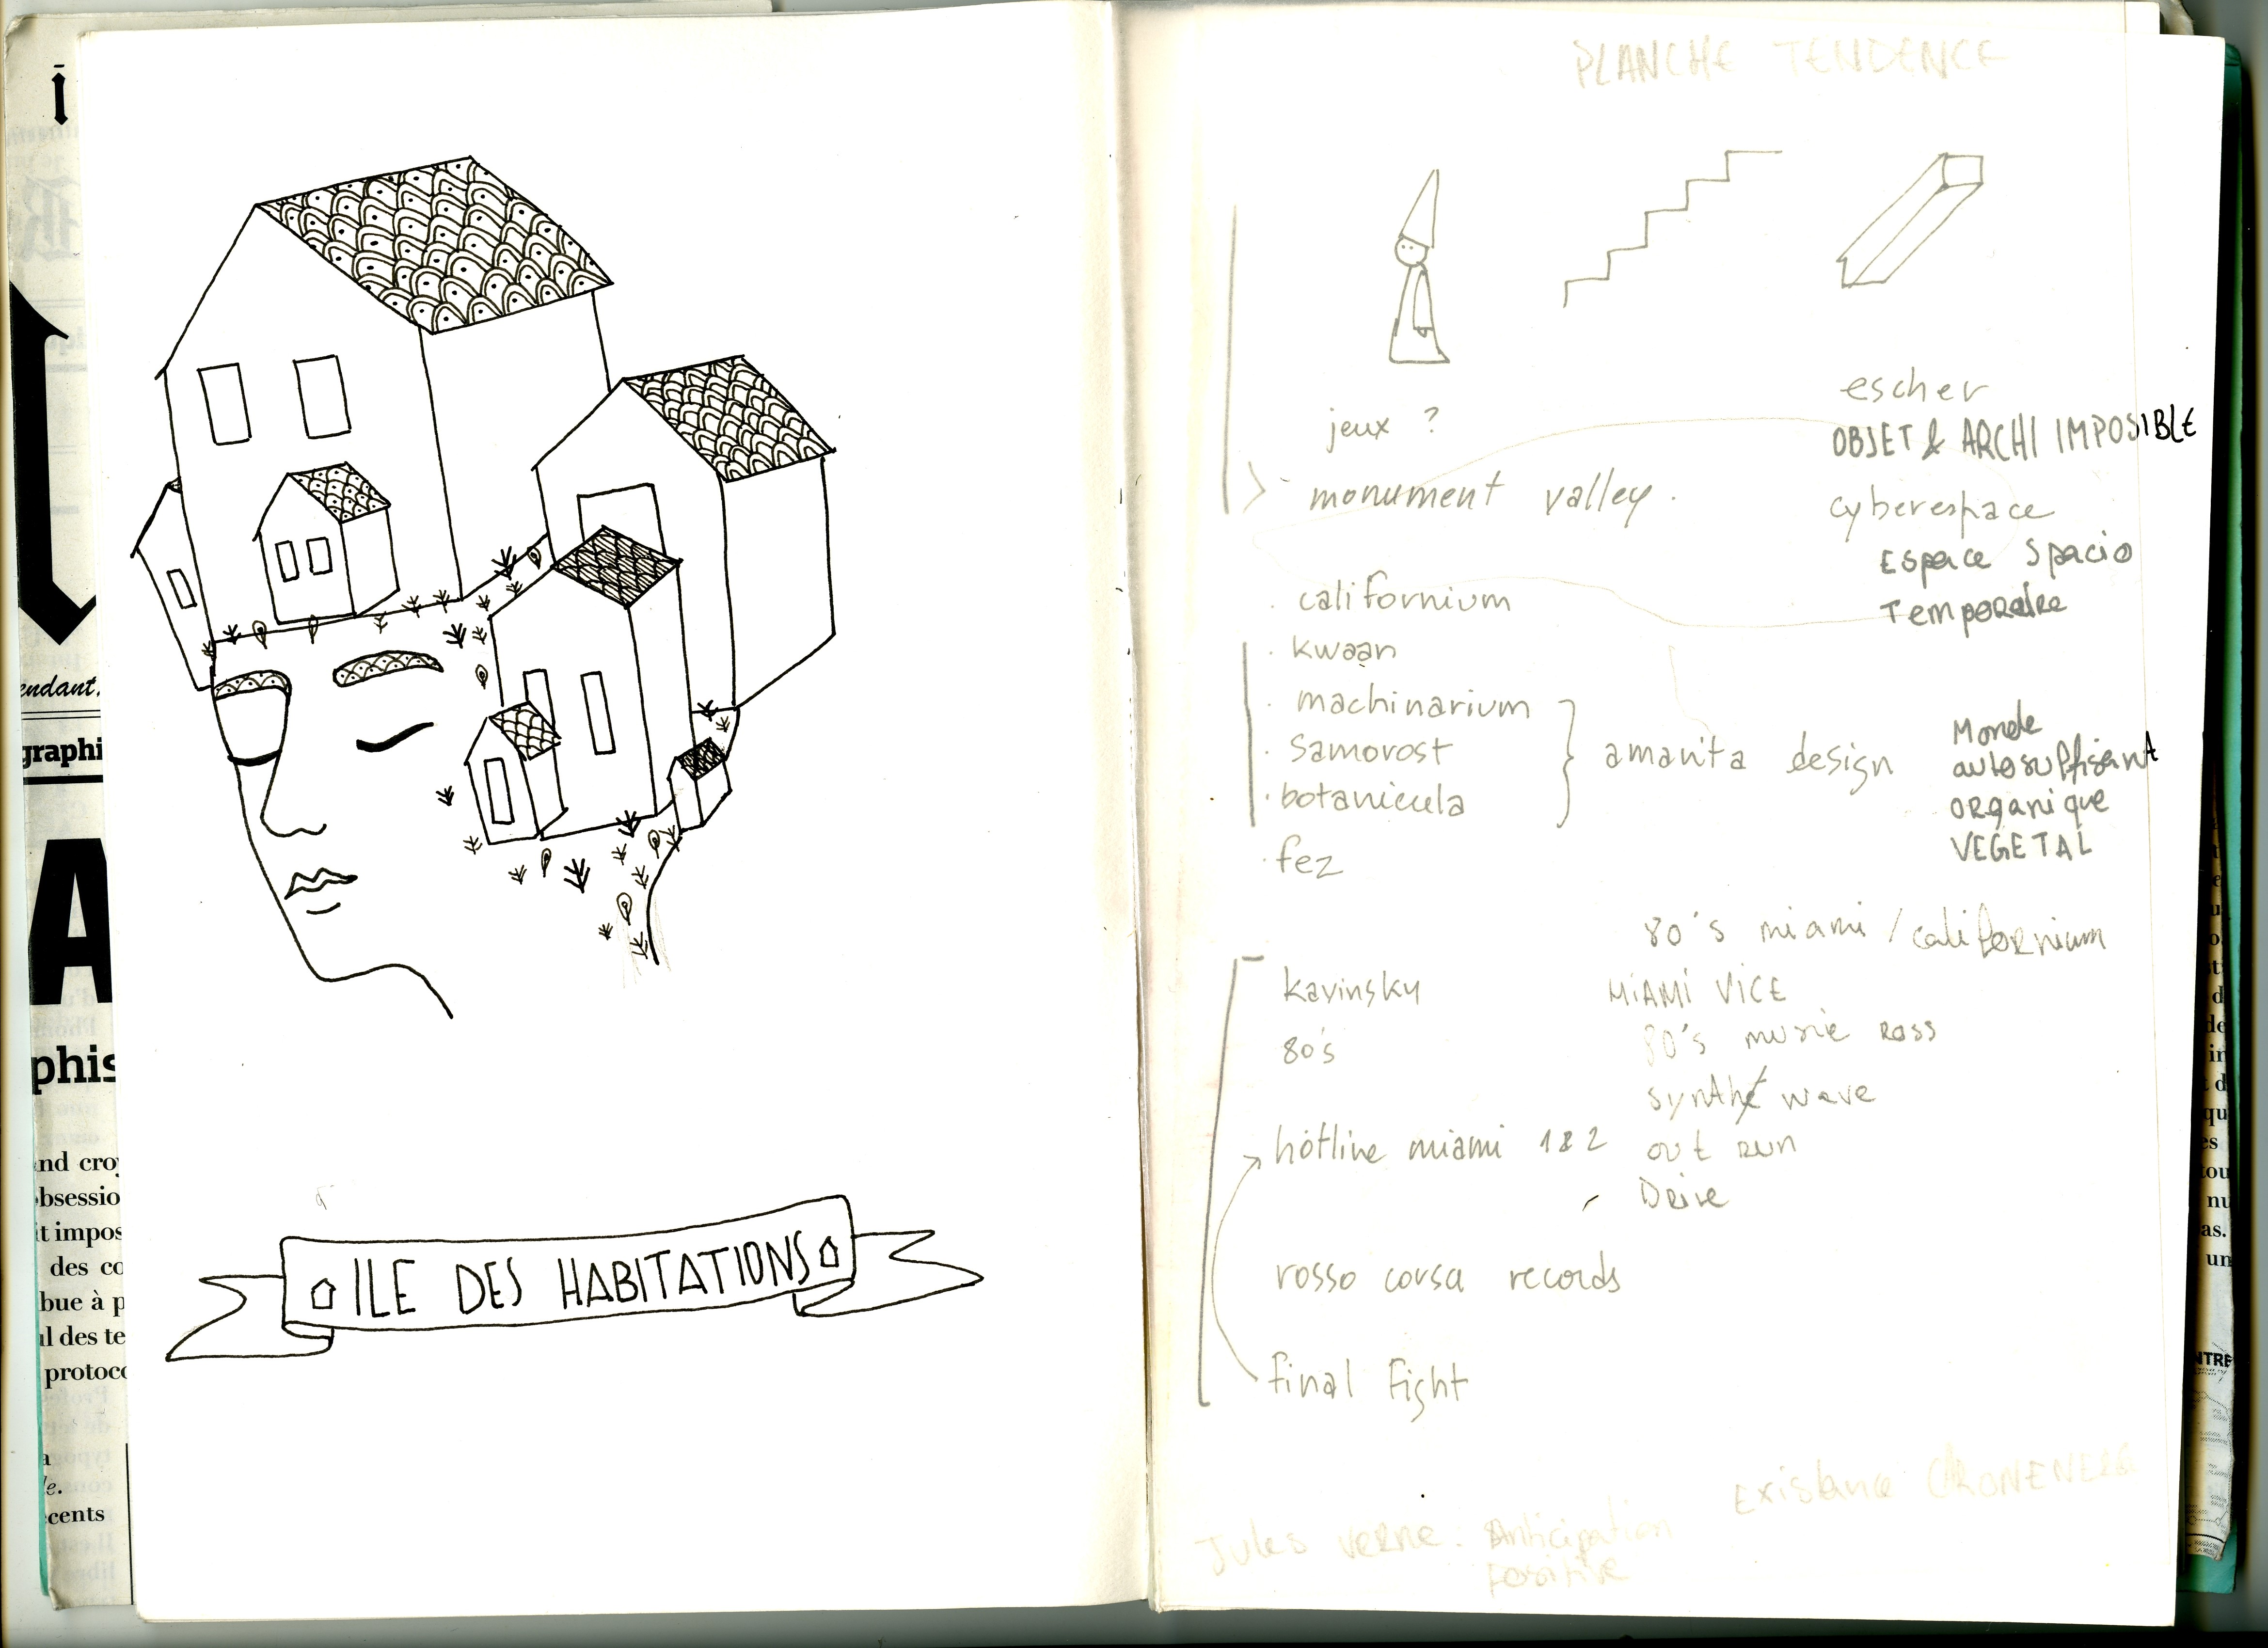 endant.
graphi
A
phis
nd croy
bsessio
it impos
des co
bue à p
l des te
protoco
a
le.
cents
ILE DES HABITATIONS
PLANCHE TENDENCE
escher
jeux ?
OBJET & ARCHI IMPOSIBLE
monument valley.
cyberespace
Espace Spacio
Temporelre
californium
kwaan
machinarium
Samorost
botanicula
amanita design
Monde
autosuffisant
organique
VEGETAL
fez
80's miami / californium
kavinsky
MiAMi ViCE
80's
80's music Ross
synth wave
hotline miami 1&2
out run
Drive
rosso corsa records
final fight
Existance CRONENERG
Jules Verne : Anticipation
positive
NTRE